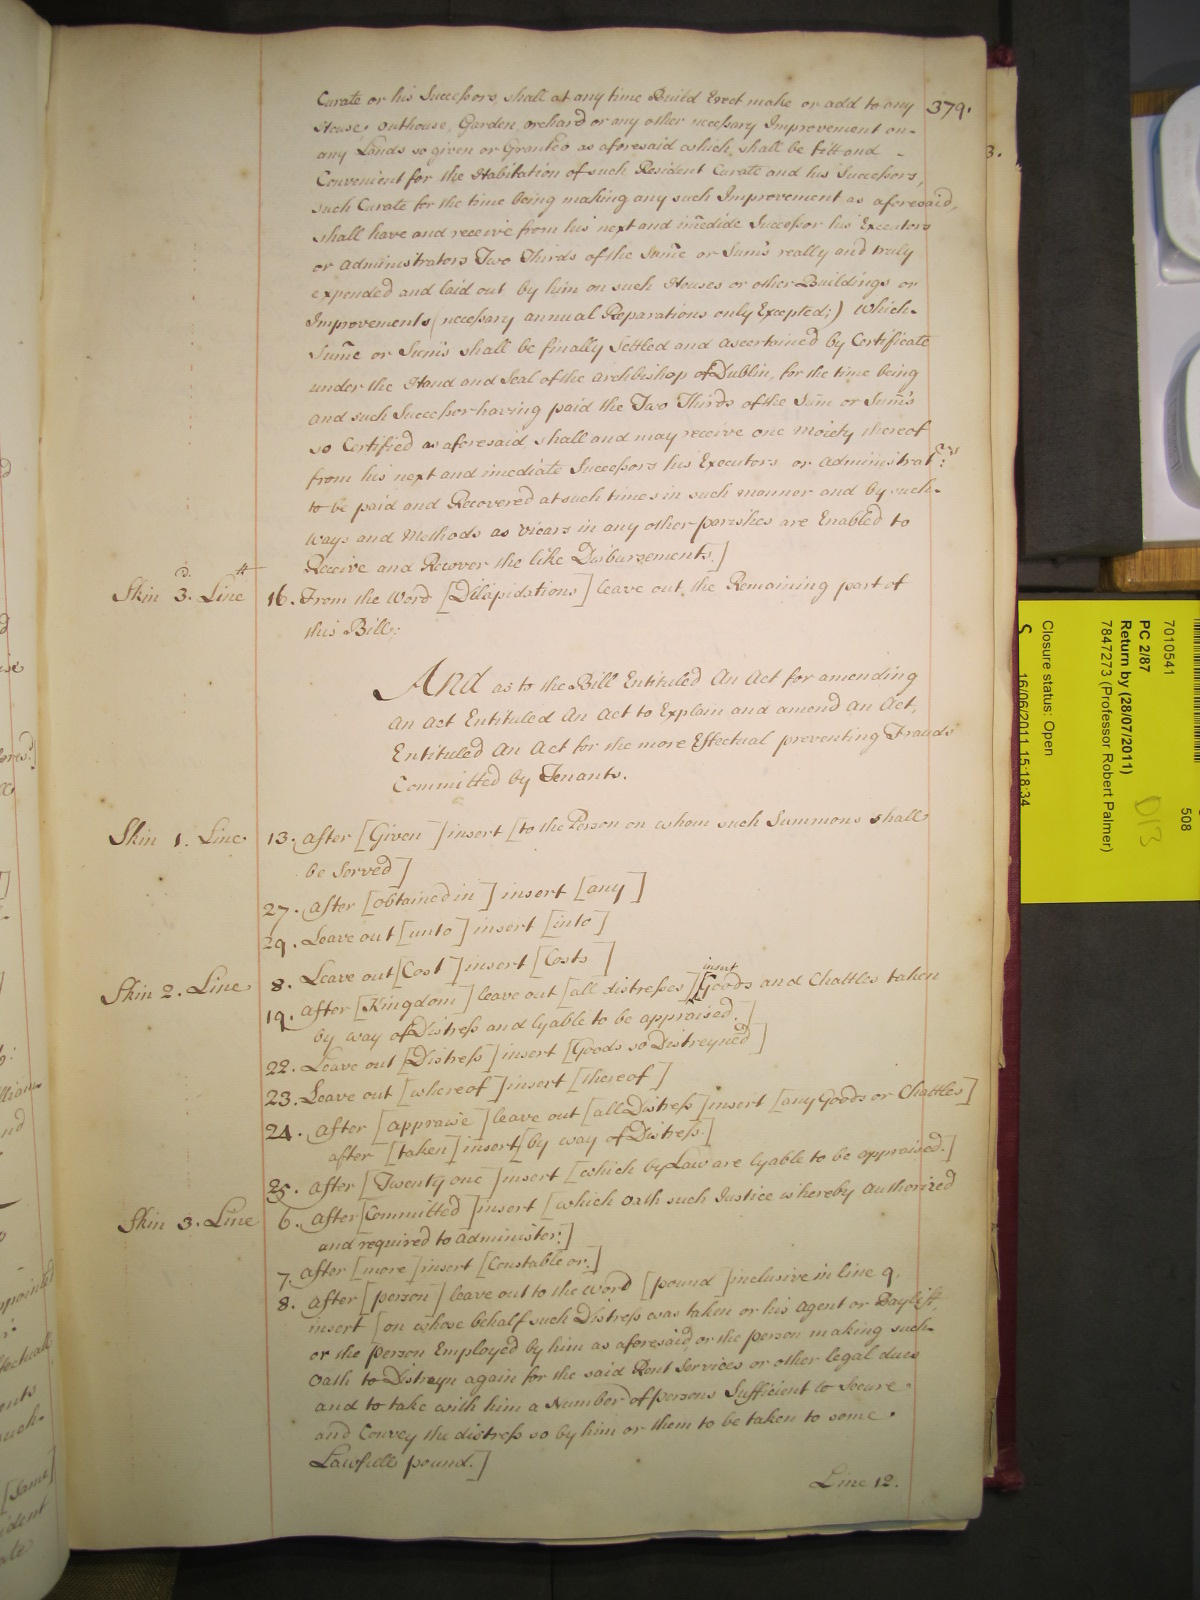 379.
Curate or his Successors, shall at any time Build Erect make or add to any
House, outhouse, Garden, orchard or any other necessary Improvement on
any Lands so given or Granted as aforesaid which shall be fitt and
Convenient for the Habitation of such Resident Curate and his Successors,
such Curate for the time being making any such Improvement as aforesaid,
shall have and receive from his next and im̄edide Successor his Executors
or administrators Two Thirds of the Sum̄e or Sum̄s really and truly
expended and laid out by him on such Houses or other Buildings or
Improvements (necessary annual Reparations only Excepted;) which
Sum̄e or Sum̄s shall be finally Settled and ascertained by Certificate
under the Hand and Seal of the archbishop of Dublin, for the time being
and such Successor having paid the Two Thirds of the Sum̄ or Sum̄s
so Certified as aforesaid, shall and may receive one moiety thereof
from his next and im̄ediate Successors his Executors or administrat:ors
to be paid and Recovered at such times in such manner and by such
ways and Methods as vicars in any other parishes are Enabled to
Receive and Recover the like Disbursements.]
Skin 3.d Line 16. From the Word [Dilapidations] leave out the Remaining part of
this Bill:
And as to the Bill Entituled An Act for amending
an act Entituled An Act to Explain and amend an Act,
Entituled An Act for the more Effectual preventing Frauds
Committed by Tenants.
Skin 1. Line 13. after [Given] insert [to the Person on whom such Summons shall
be served]
27. after [obtained in] insert [any]
29. Leave out [unto] insert [into]
Skin 2. Line 8. Leave out [Cost] insert [Costs]
19. after [Kingdom] leave out [all distresses] insert [Goods and Chattles taken
by way of Distress and lyable to be appraised.]
22. Leave out [Distress] insert [Goods so Distreyned]
23. Leave out [whereof] insert [thereof]
24. after [appraise] leave out [all Distress] insert [any Goods or Chattles]
after [taken] insert [by way of Distress.]
25. after [Twenty one] insert [which by Law are lyable to be appraised.]
Skin 3. Line 6. after [Committed] insert [which Oath such Justice is hereby authorized
and required to administer:]
7. after [more] insert [Constable or.]
8. after [person] leave out to the word [pound] inclusive in line 9.
insert [on whose behalf such Distress was taken or his agent or Bayliff,
or the person Employed by him as aforesaid, or the person making such
Oath to Distreyn again for the said Rent Services or other legal dues
and to take with him a Number of persons Sufficient to Secure
and Convey the distress so by him or them to be taken to some
Lawfull pound.]
Line 12.
3.
508
7010541
PC 2/87
Return by (28/07/2011)
7847273 (Professor Robert Palmer)
D13
Closure status: Open
S
16/06/2011 15:18:34